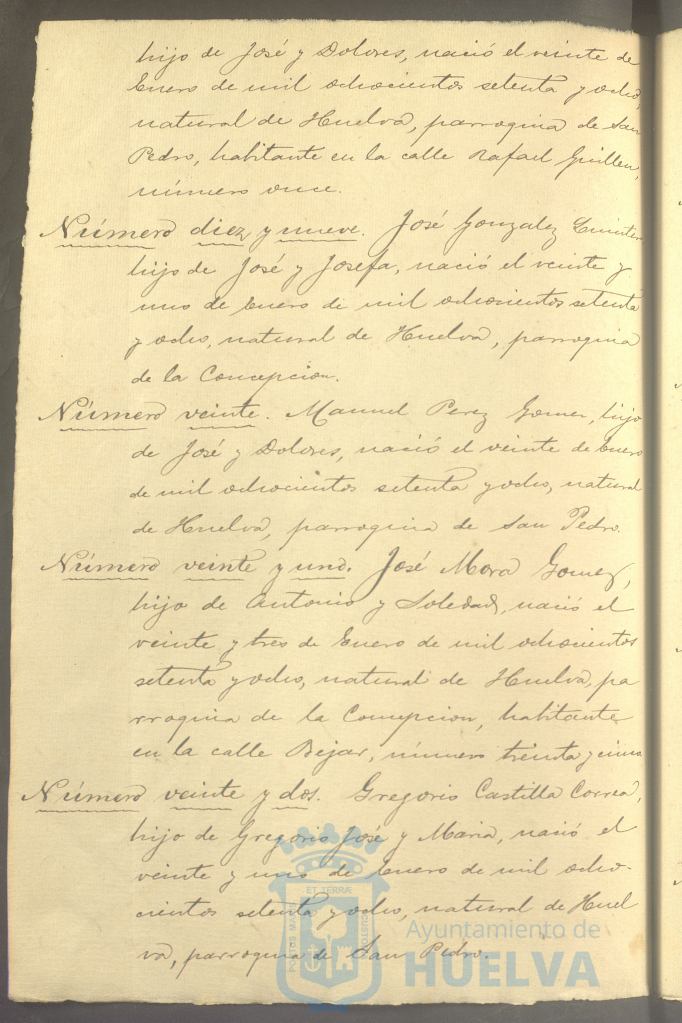 hijo de José y Dolores, nació el veinte de
Enero de mil ochocientos setenta y ocho,
natural de Huelva, parroquia de San
Pedro, habitante en la calle Rafael Guillen,
número once.
Número diez y nueve. José Gonzalez
hijo de José y Josefa, nació el veinte y
uno de Enero de mil ochocientos setenta
y ocho, natural de Huelva, parroquia
de la Concepcion.
Número veinte. Manuel Perez Gomez, hijo
de José y Dolores, nació el veinte de Enero
de mil ochocientos setenta y ocho, natural
de Huelva, parroquia de San Pedro.
Número veinte y uno. José Mora Gomez,
hijo de Antonio y Soledad, nació el
veinte y tres de Enero de mil ochocientos
setenta y ocho, natural de Huelva, pa
rroquia de la Concepcion, habitante
en la calle Bejar, número treinta y cinco
Número veinte y dos. Gregorio Castilla Correa,
hijo de Gregorio José y Maria, nació el
veinte y uno de Enero de mil ocho-
cientos setenta y ocho, natural de Huel
va, parroquia de San Pedro.
PORTUS MARIS ET TERRÆ CUSTODIA
Ayuntamiento de
HUELVA